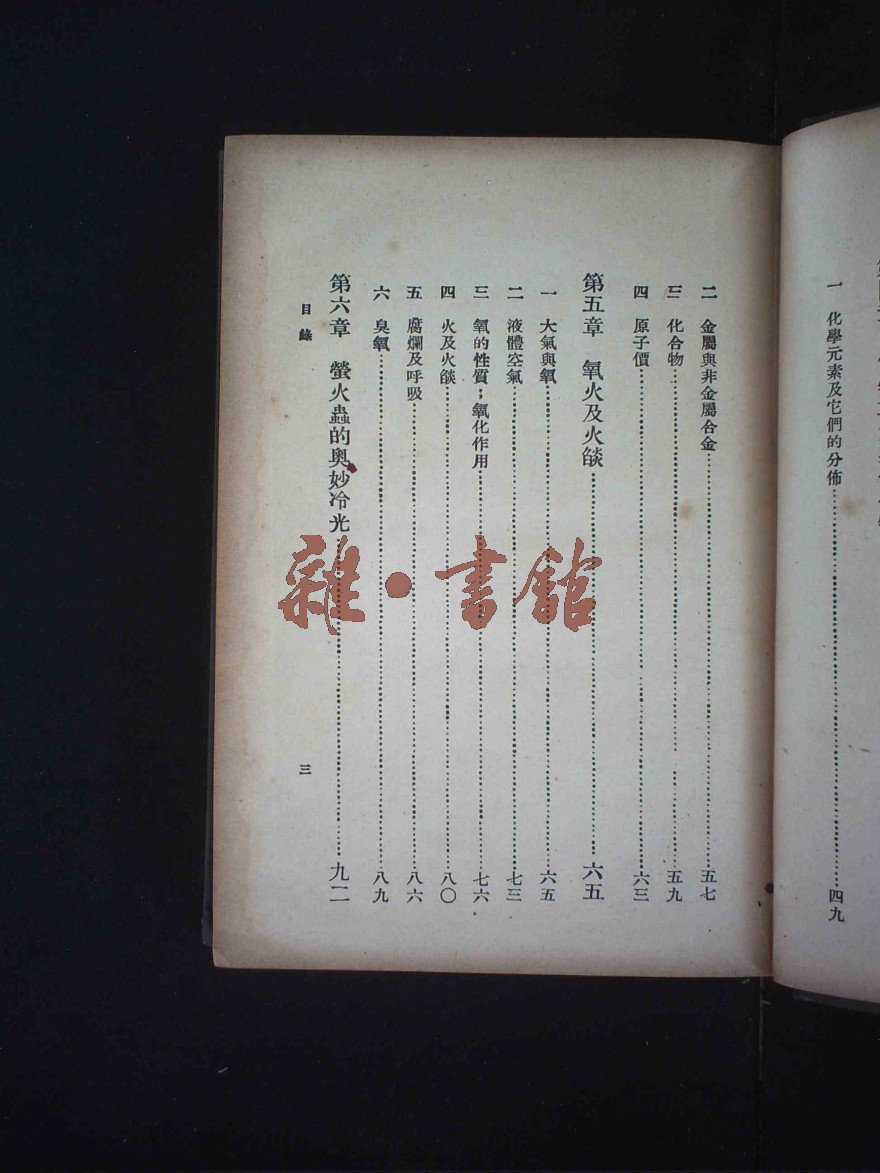 一　化學元素及它們的分佈……四九
二　金屬與非金屬合金……五七
三　化合物……五九
四　原子價……六三
第五章　氧火及火燄……六五
一　大氣與氧……六五
二　液體空氣……七三
三　氧的性質；氧化作用……七六
四　火及火燄……八〇
五　腐爛及呼吸……八六
六　臭氧……八九
第六章　螢火蟲的奧妙冷光……九二
目錄
三
雜·書館